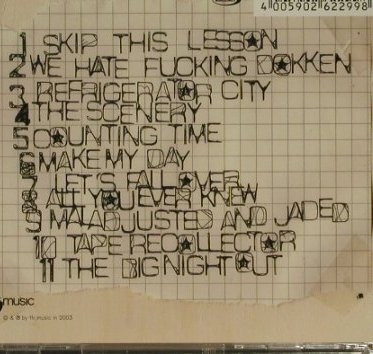 4 005902 622998
1 SKIP THIS LESSON
2 WE HATE FUCKING DOKKEN
3 REFRIGERATOR CITY
4 THE SCENERY
5 COUNTING TIME
6 MAKE MY DAY
7 LET'S FALL OVER
8 ALL YOU EVER KNEW
9 MALADJUSTED AND JADED
10 TAPE RECOLLECTOR
11 THE BIG NIGHT OUT
music
© & ℗ by music in 2003